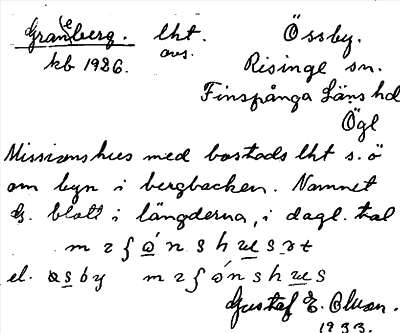 Gran(e)berg. lht. Össby.
kb 1926. avs. Risinge sn.
Finspånga Läns hd
Ögl
Missionshus med bostads lht s.ö
om byn i bergbacken. Namnet
G. blott i längderna, i dagl. tal
el.
Gustaf E. Olsson.
1933.